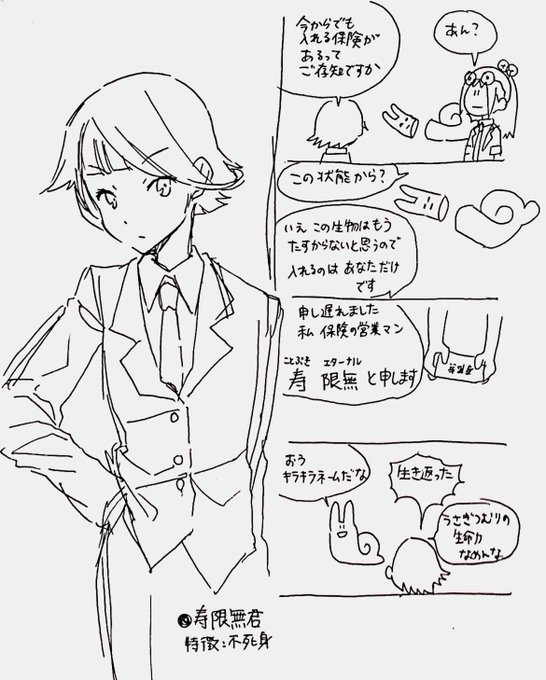 あん？
今からでも
入れる保険が
あるって
ご存知ですか
この状態から？
いえ この生物はもう
たすからないと思うので
入れるのは あなただけ
です
申し遅れました
私 保険の営業マン
ことぶき エターナル
寿 限無 と申します
生き返った
おう
キラキラネームだな
うさぎつむりの
生命力
なめんな
寿限無君
特徴:不死身